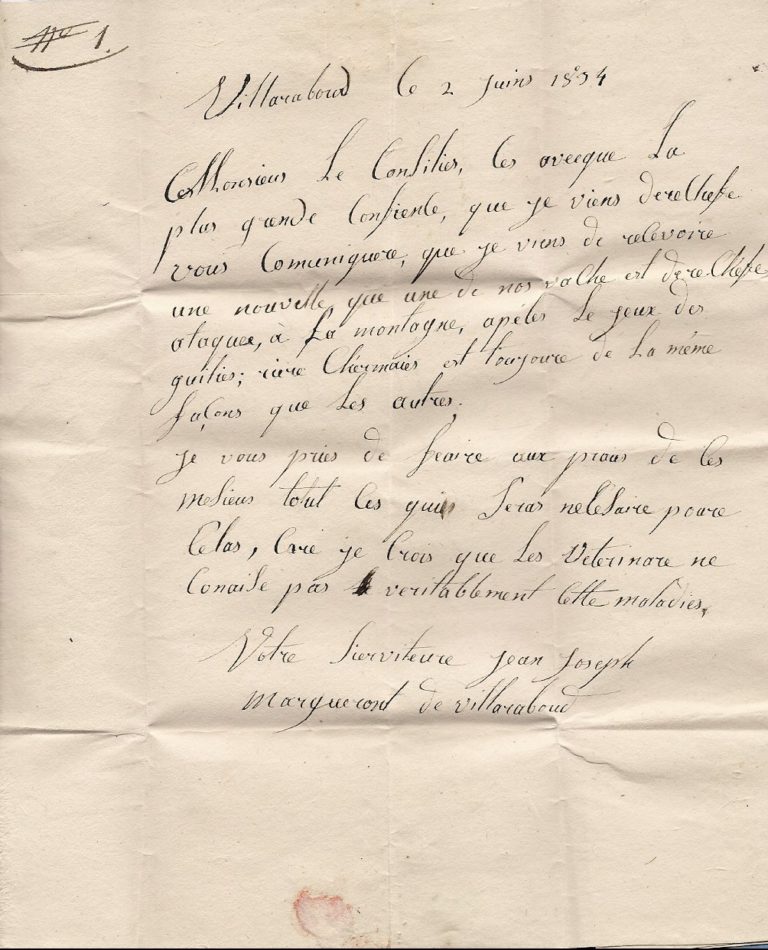 No 1.
Villaraboud le 2 Juins 1834
Monsieus Le Consilies, Ces avecque La
plus grande Confiente, que je viens derechefe
vous Comuniquere, que je viens de relevoire
une nouvelle que une de nos vache est derechefe
ataquee, à La montagne, apélés Le jeux des
guities; riere Charmais est toujoure de La même
façons que Les autres.
je vous pries de feaire aux praus de Ces
mesieus tout Ces quies Seras nécésaire poure
Celas, Care je Crois que Les Veterinare ne
Conaise pas veritablement Cette maladies,
Votre Sierviteure Jean Joseph
Margueront de villaraboud